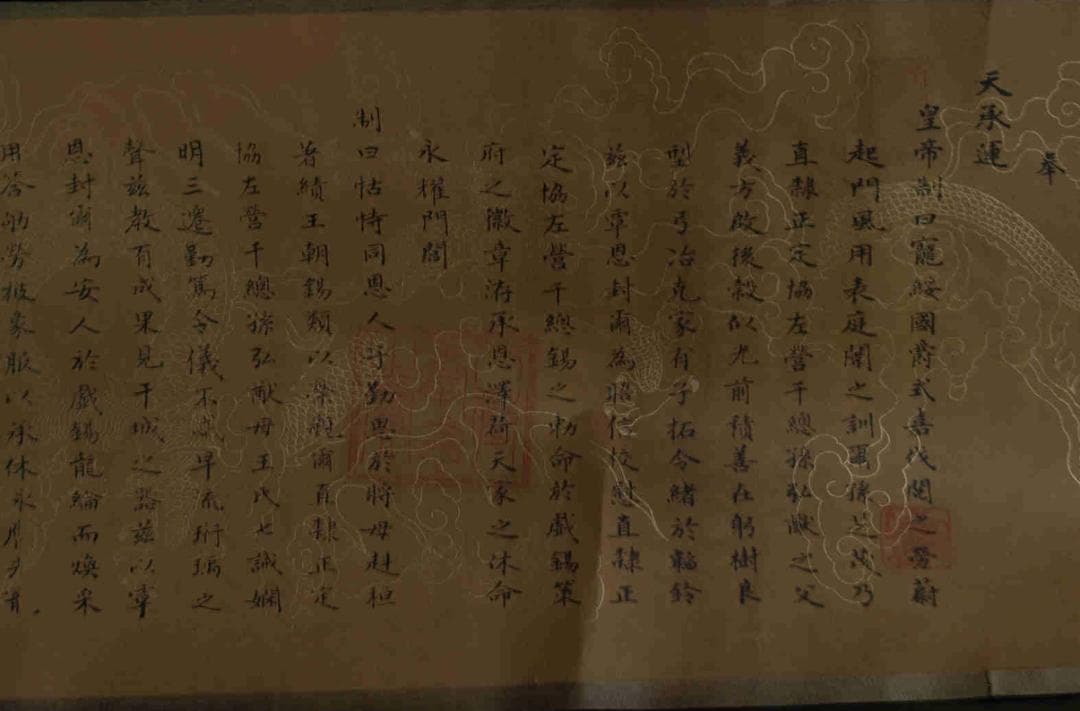 奉
天承運
皇帝制曰寵綏國爵式嘉伐閱之勞蔚
起門風用表庭闈之訓爾孫芝茂乃
直隸正定協左營千總孫弘猷之父
義方啟後穀似光前積善在躬樹良
型於弓冶克家有子拓令緒於韜鈐
茲以覃恩封爾為昭信校尉直隸正
定協左營千總錫之勅命於戲錫策
府之徽章洊承恩澤荷天家之休命
永耀門閭
制曰怙恃同恩人子勤思於將母赳桓
著績王朝錫類以榮親爾直隸正定
協左營千總孫弘猷母王氏七誡嫻
明三遷勤篤令儀不忒早流珩瑀之
聲茲教有成果見干城之器茲以覃
恩封爾為安人於戲錫龍綸而煥采
用答劬勞被象服以承休永